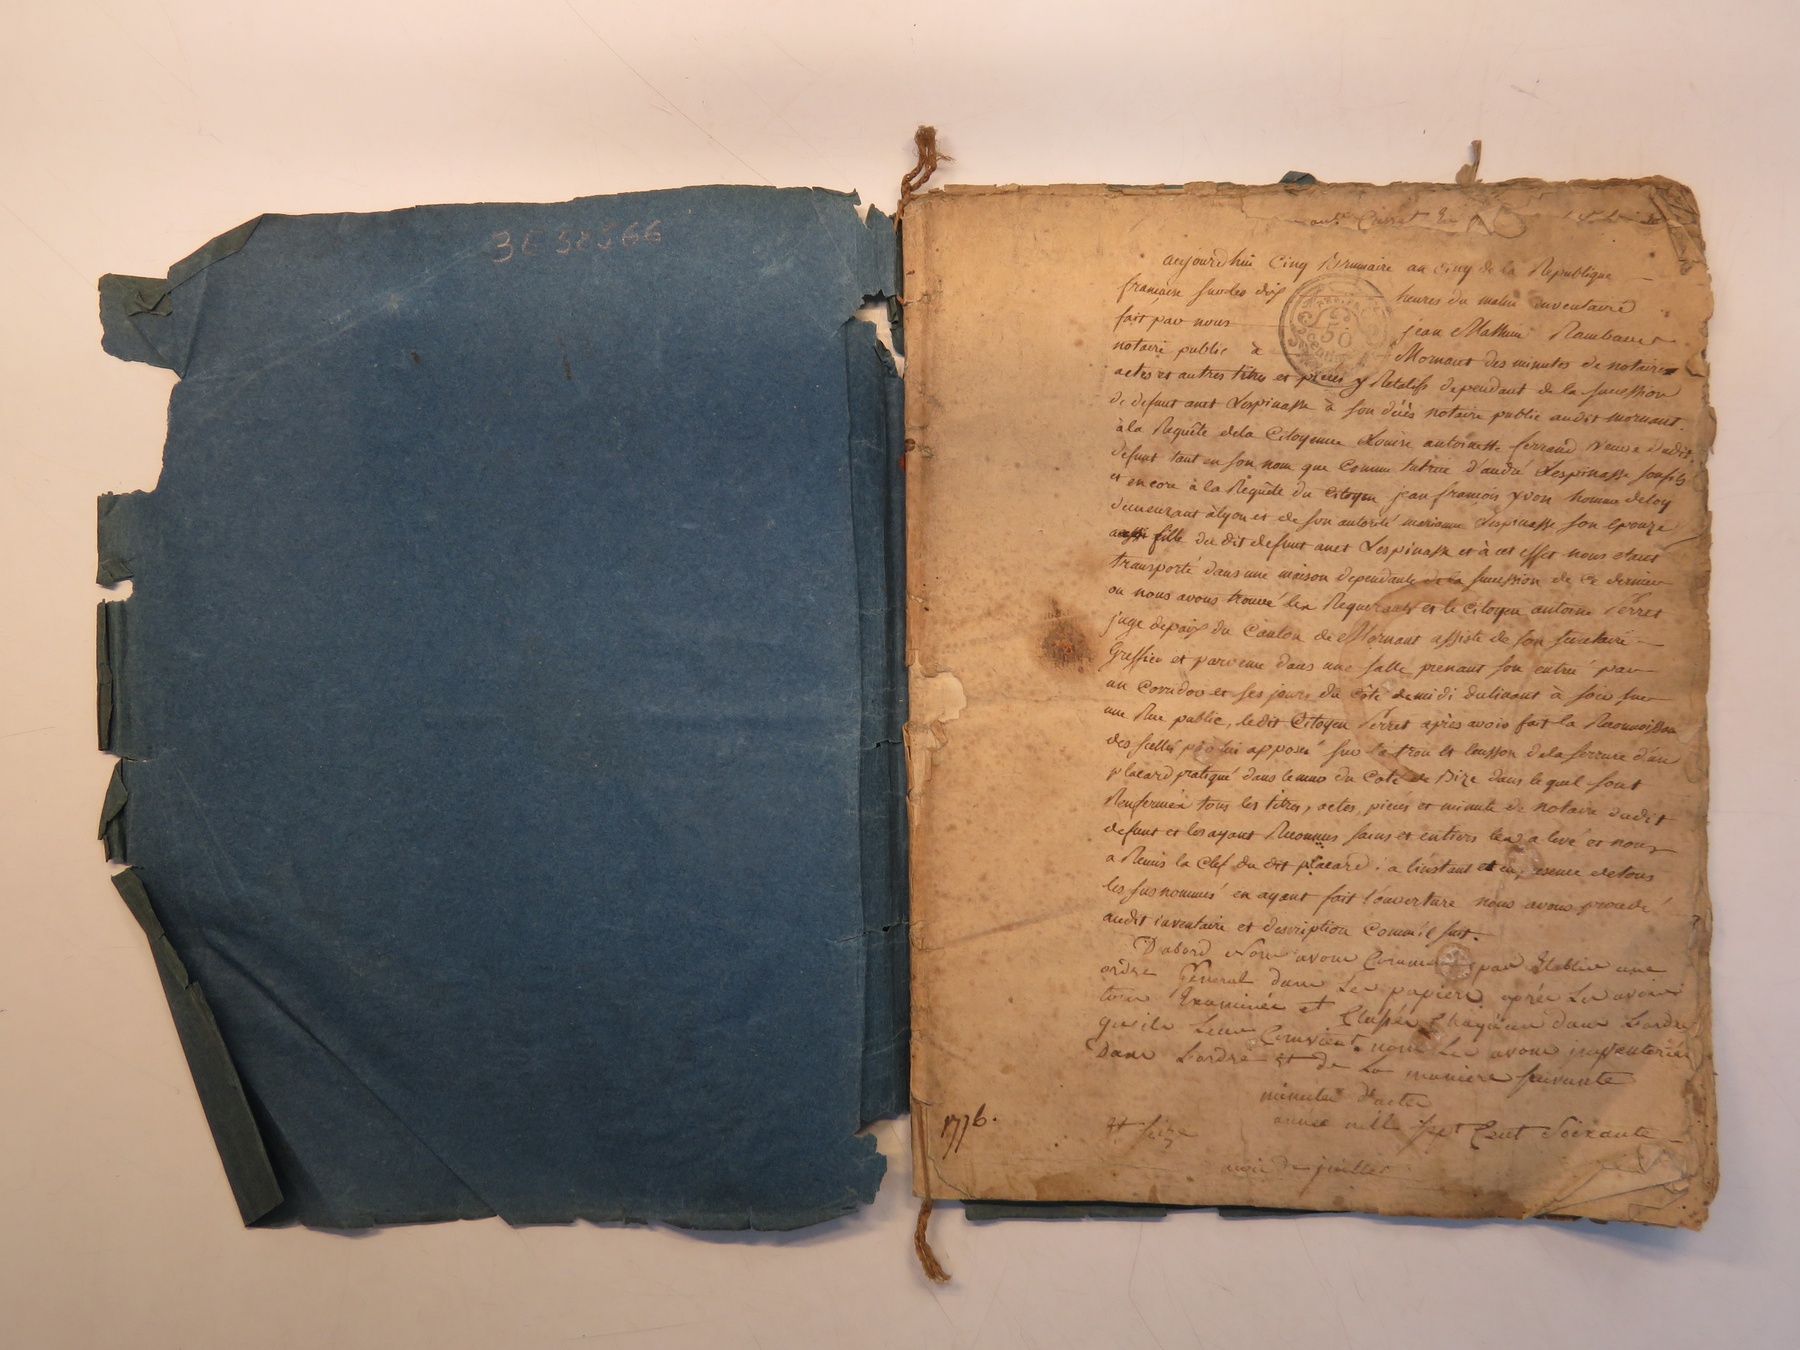 3E 38566
aujourd'hui Cinq Brumaire an Cinq de la Republique
francaise sur les dix heures du matin inventaire
fait par nous jean Mathieu Rambaud
50
notaire public à Mornant des minutes de notaires
actes et autres titres et pieces y Relatifs dependant de la succession
de defunt anet Lespinasse à son décès notaire public audit mornant.
à la Requête dela Citoyenne Louise antoinette ferrand veuve dudit
defunt tant en son nom que comme tutrice d'andré Lespinasse son fils
et encore à la Requête du Citoyen jean françois yvon homme deloy
demeurant àlyon et de son autorité marianne Lespinasse son epouze
aussi fille du dit defunt anet Lespinasse et à cet effet nous etant
transporté dans une maison dependante de la succession de ce dernier
ou nous avons trouvé les Requerants et le Citoyen antoine Perret
juge depaix du Canton de Mornant assisté de son secretaire
Greffier et parvenu dans une salle prenant son entré par
un Corridor et ses jours du côté de midi sur
une Rue public, ledit Citoyen Perret après avoir fait la Reconnoissan
des scellé par lui apposé sur le trou et de la serrure d'un
placard pratiqué dans le mur du Coté de Bize dans le quel sont
Renfermés tous les titres, actes, pieces et minute de notaire dudit
defunt et les ayant Reconnus sains et entiers les a levé et nous
a Remis la Clef du dit placard. a l'instant et en presence de tous
les susnommés en ayant fait l'ouverture nous avons procedé
audit inventaire et description Comme il suit.
D'abord Nous avons Commencé par Etablir une
ordre General dans Les papiers après Les avoir
tous Examinés et Classés Chaqu'un dans L'ordre
qu'ils Leur Convient nous Les avons inventoriés
Dans L'ordre Et de La maniere suivante
minutes d'actes
1776.
année mille Sept Cent Soixante
et seize
mois de juillet